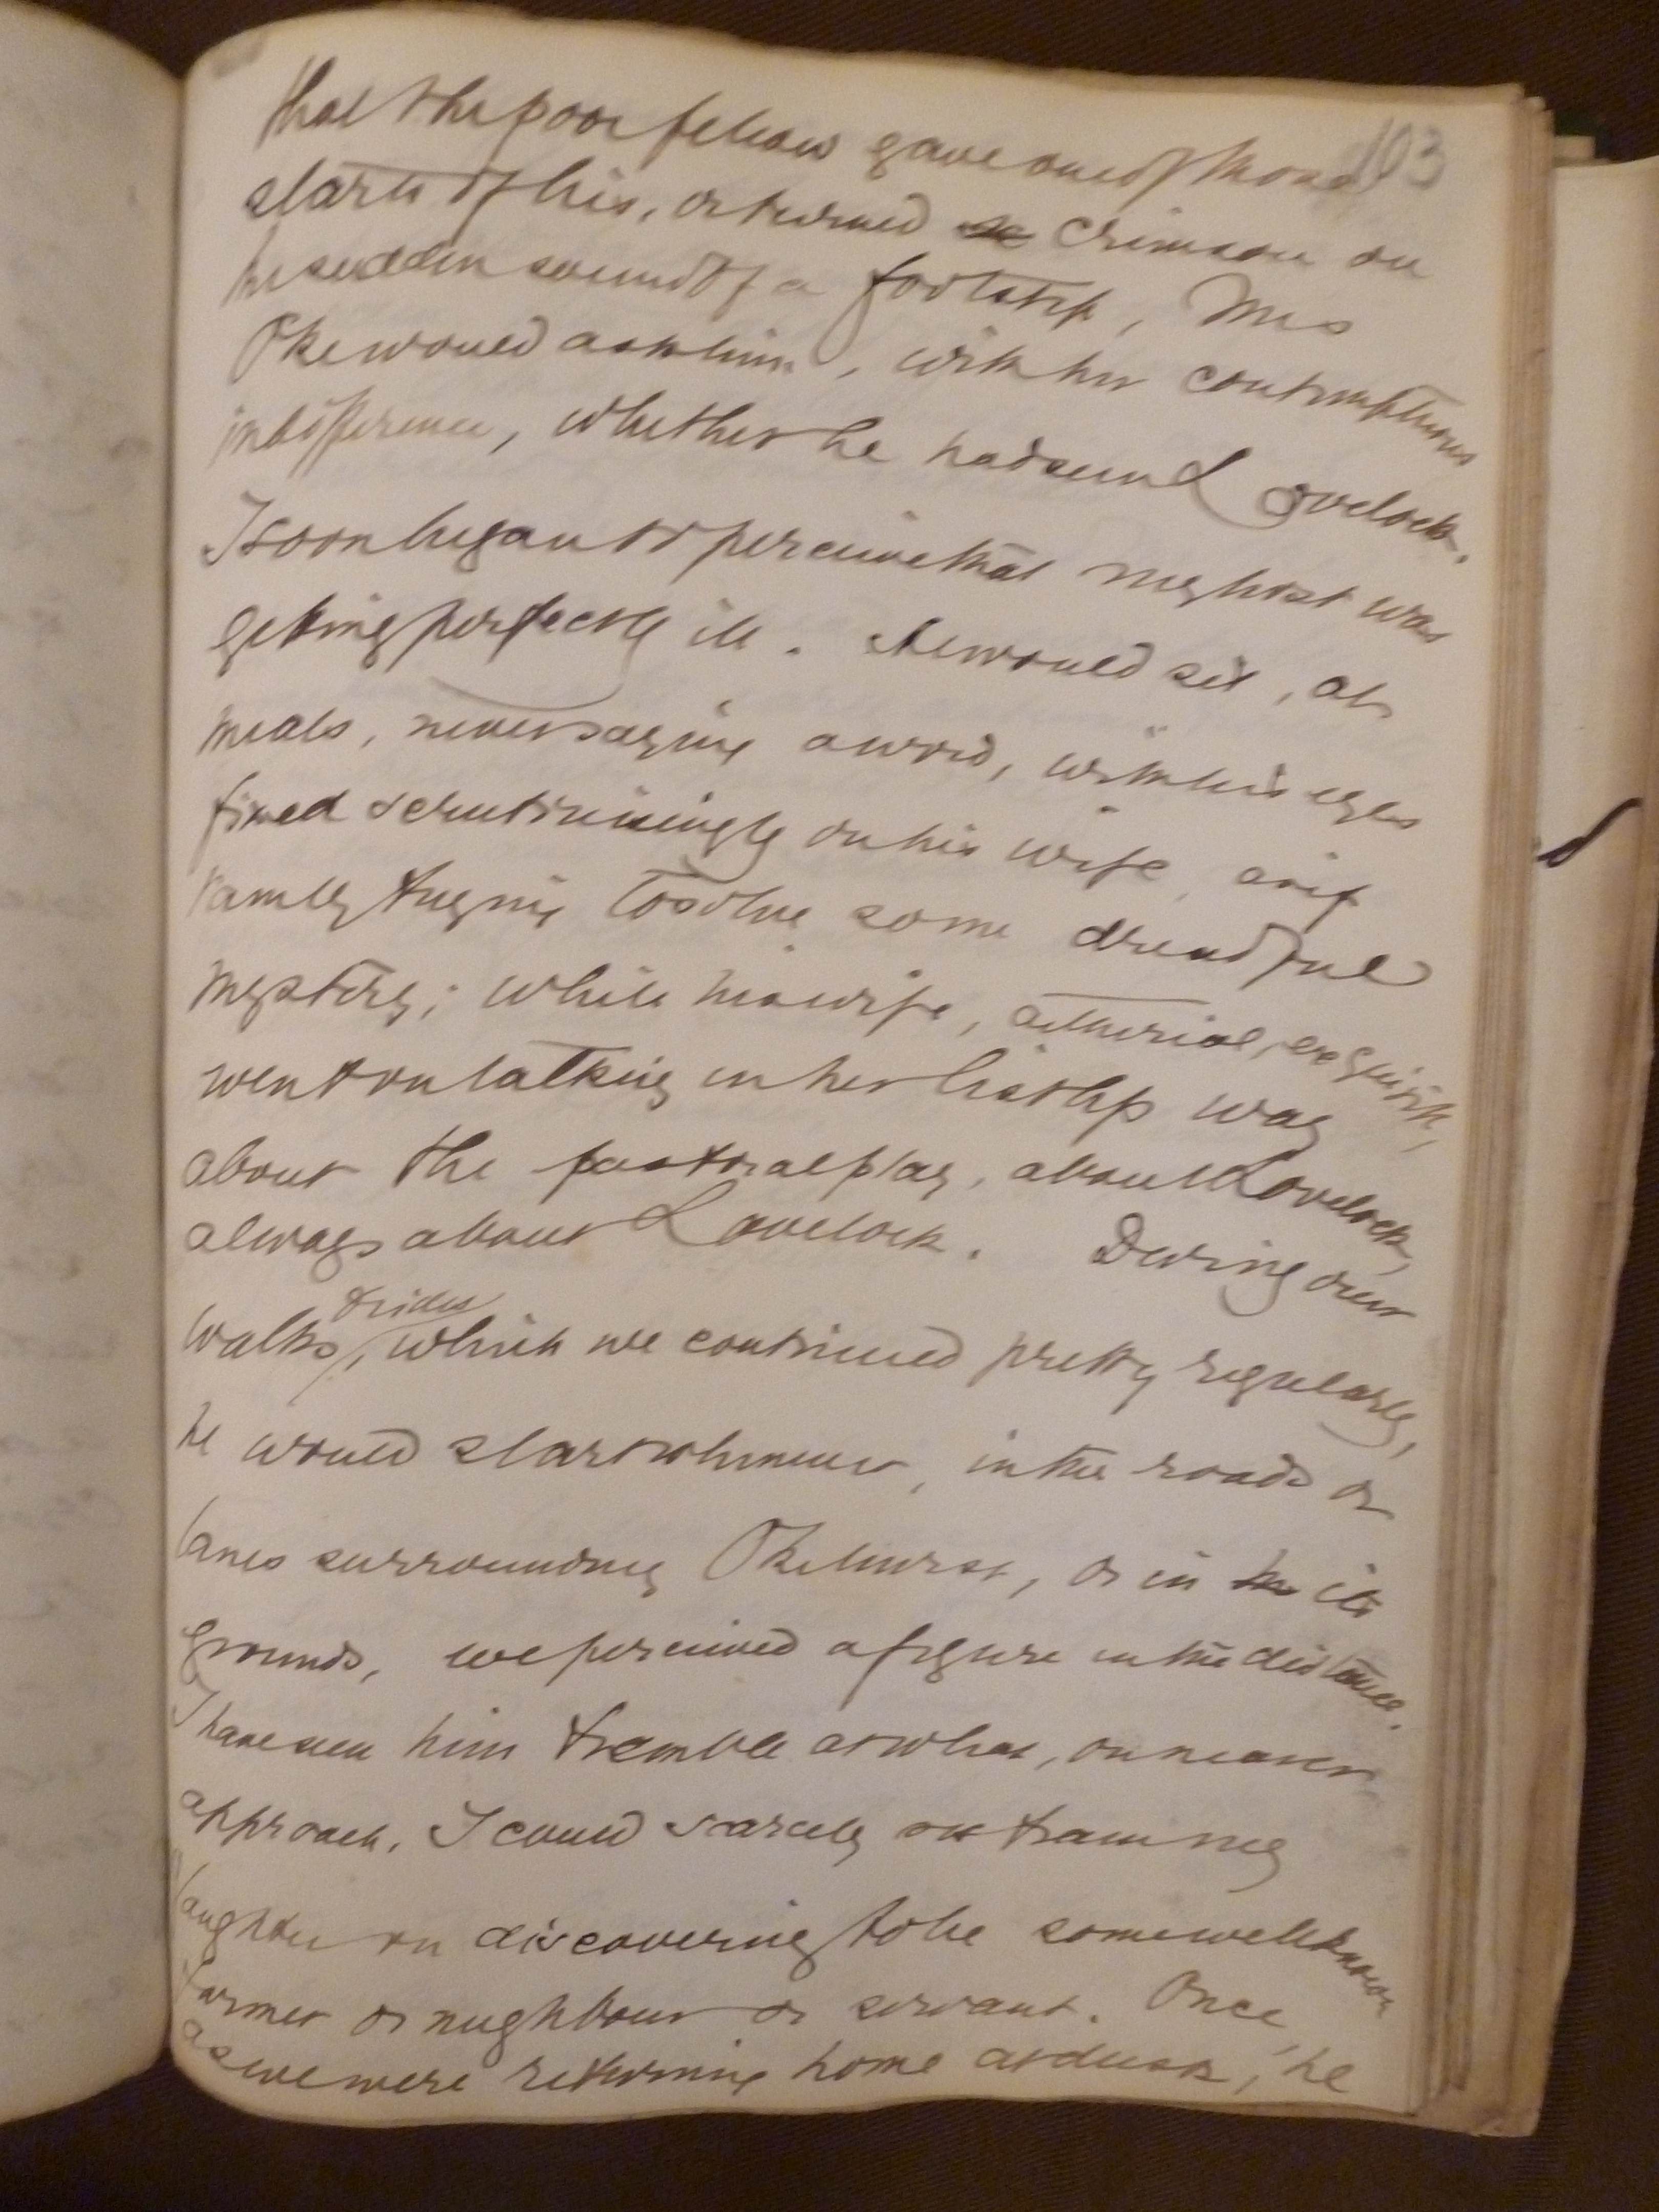 103
that the poor fellow gave one of those
starts of his, or turned crimson on
the sudden sound of a footstep, Mrs
Oke would ask him, with her contemptuous
indifference, whether he had seen Lovelock.
I soon began to perceive that my host was
getting perfectly ill. He would sit, at
meals, never saying a word, with his eyes
fixed scrutinisingly on his wife, as if
vainly trying to solve some dreadful
mystery; while his wife, aetherial, exquisite,
went on talking in her listless way
about the pastoral play, about Lovelock,
always about Lovelock. During our
walks & rides, which we continued pretty regularly,
he would start whenever, in the roads or
lanes surrounding Okehurst, or in its
grounds, we perceived a figure in the distance.
I have seen him tremble at what, on nearer
approach, I could scarcely my
laughter on discovering to be some well known
farmer or neighbour or servant. Once,
as we were returning home at dusk, he